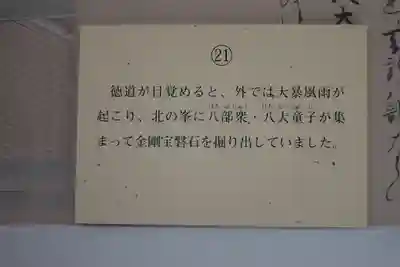 ㉑
徳道が目覚めると、外では大暴風雨が
起こり、北の峯に八部衆・八大童子が集
まって金剛宝磐石を掘り出していました。